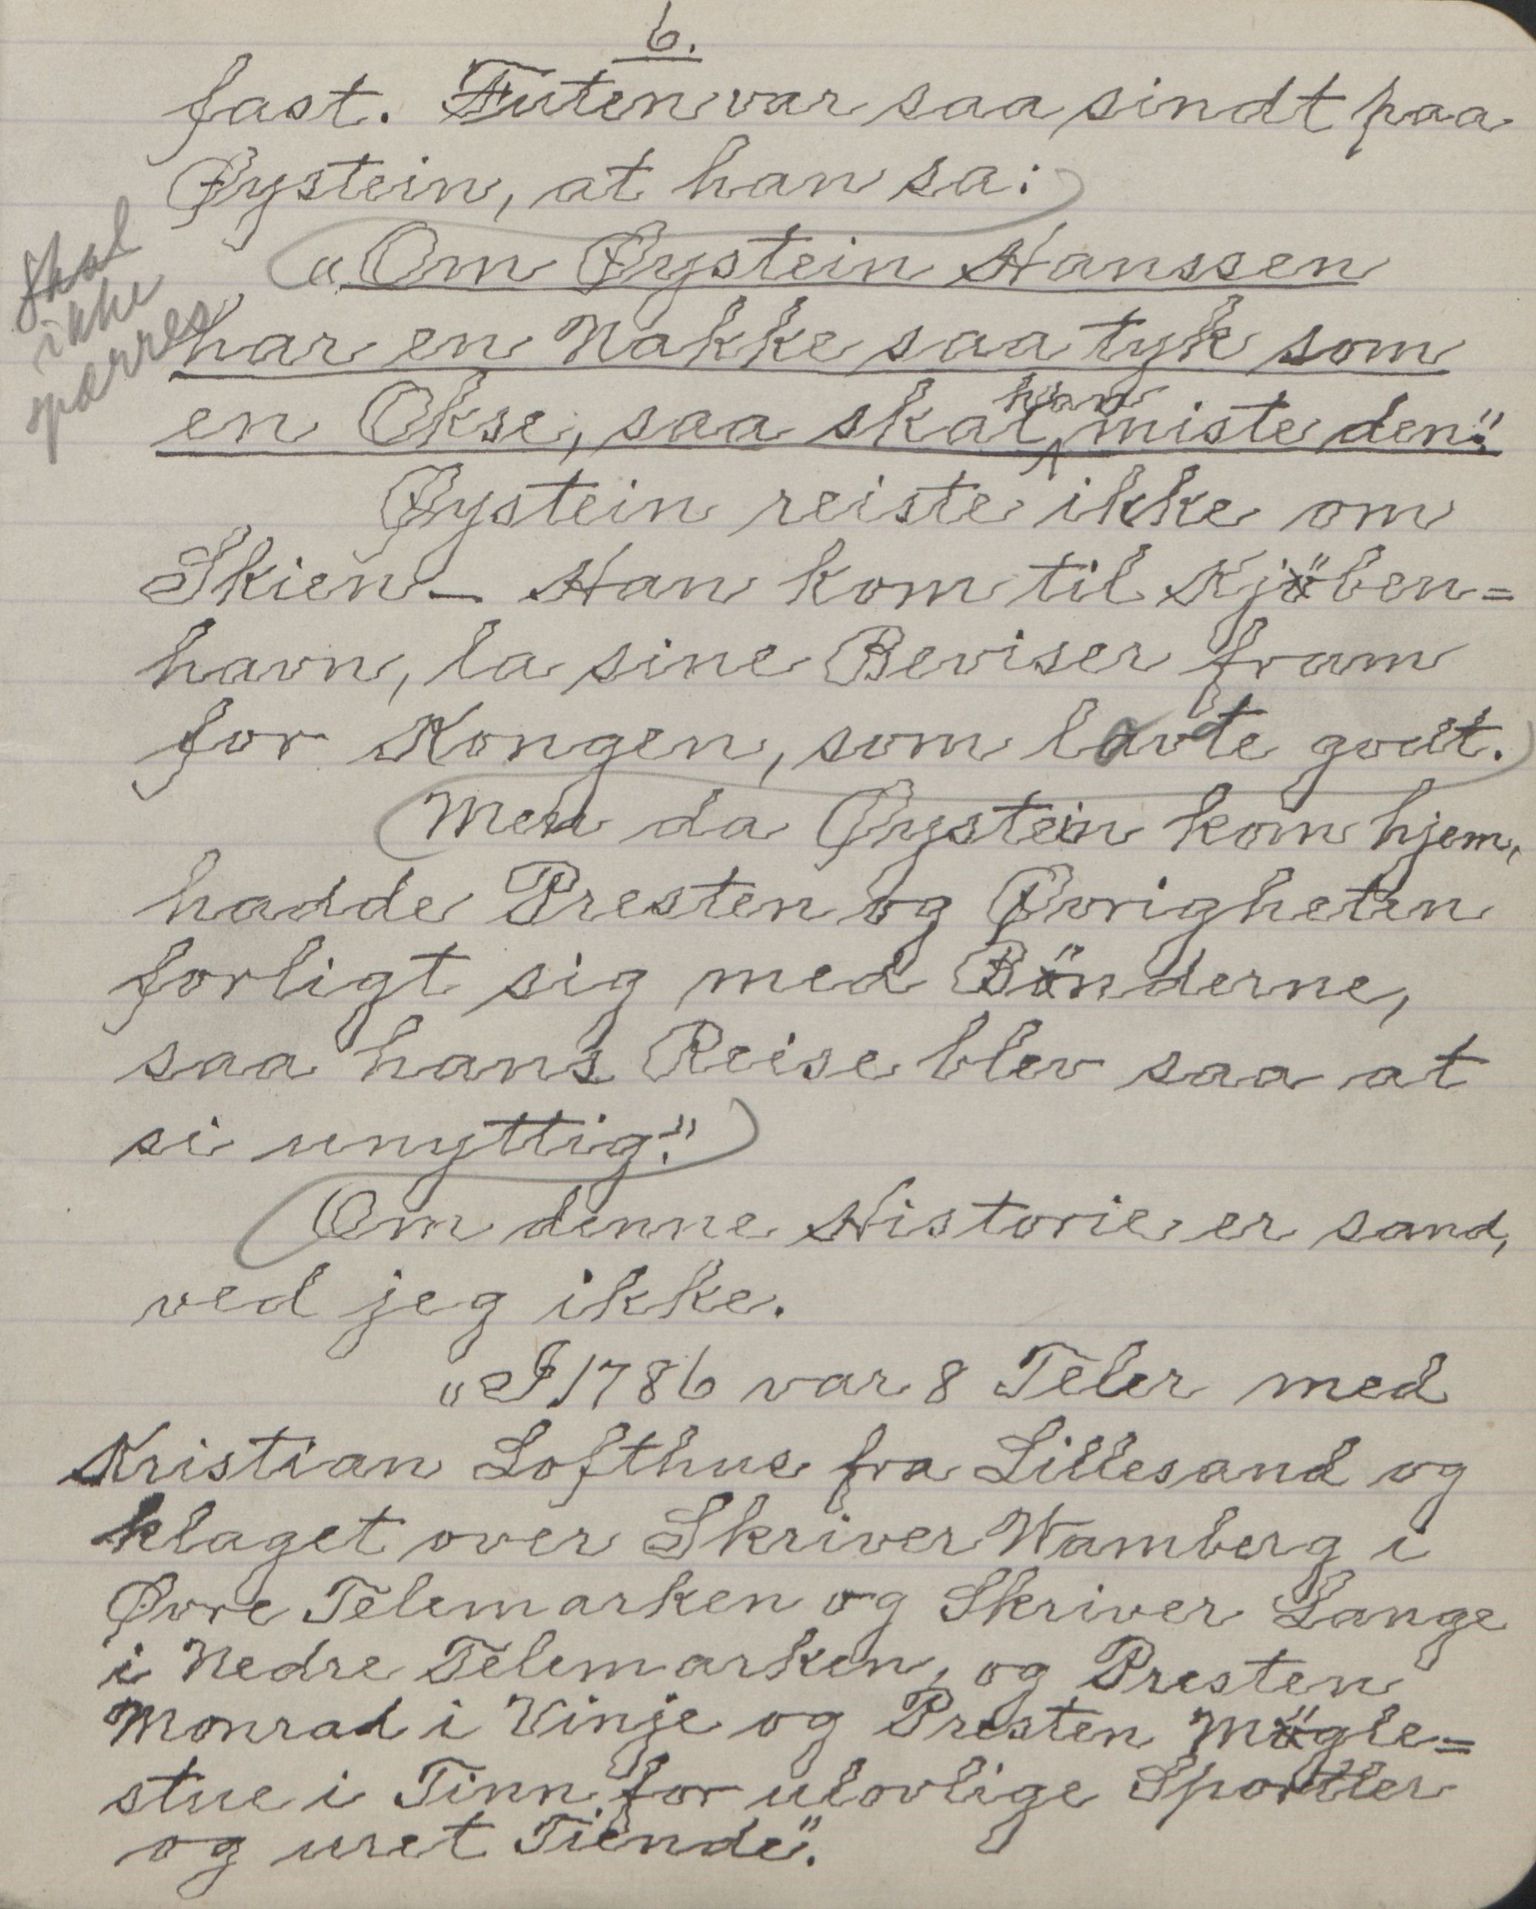 6.
fast. Futen var saa sindt paa
Øystein, at han sa:
„Om Øystein Hanssen
har en Nakke saa tyk som
en Okse, saa skal han miste den."
Skal
ikke
sperres
Øystein reiste ikke om
Skien – Han kom til Kjöben=
havn, la sine Beviser fram
for Kongen, som lovte godt.
Men da Øystein kom hjem,
hadde Presten og Øvrigheten
forligt sig med Bönderne,
saa hans Reise blev saa at
si unyttig."
Om denne Historie er sand,
ved jeg ikke.
„I 1786 var 8 Teler med
Kristian Lofthus fra Lillesand og
klaget over Skriver Wamberg i
Øvre Telemarken og Skriver Lange
i Nedre Telemarken, og Presten
Monrad i Vinje og Presten Mögle=
stue i Tinn for ulovlige Sportler
og uret Tiende".